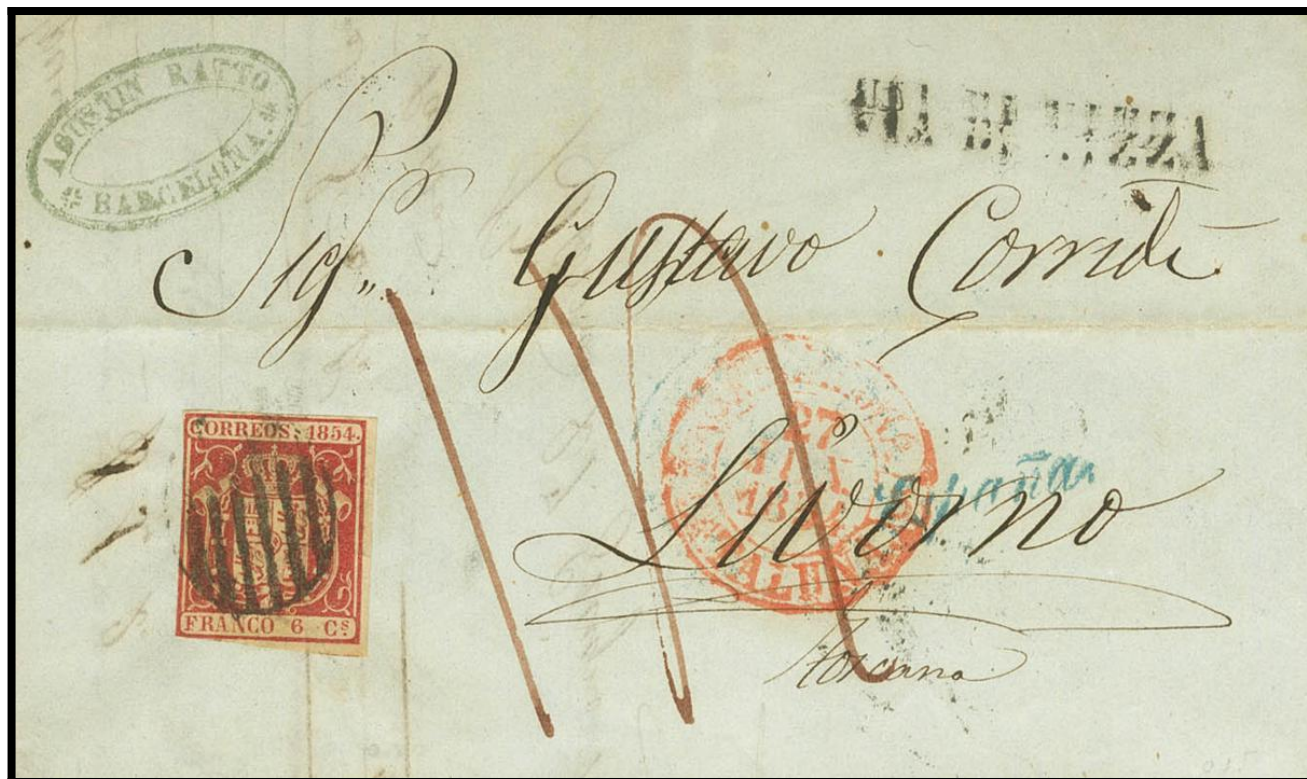 AGUSTIN RATTO
BARCELONA.
VIA DI NIZZA
Sigr. Gustavo Corridi
CORREOS. 1854.
27
España
Livorno
FRANCO 6 Cs
Toscana